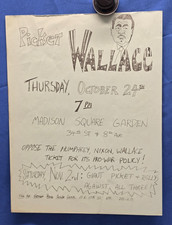 Picket
WALLACE
THURSDAY, OCTOBER 24th
7:00
MADISON SQUARE GARDEN
34th ST & 8th AVE
OPPOSE THE HUMPHREY, NIXON, WALLACE
TICKET FOR ITS PRO-WAR POLICY!
SATURDAY, NOV 2nd: GIANT PICKET & RALLY
AGAINST ALL THREE!